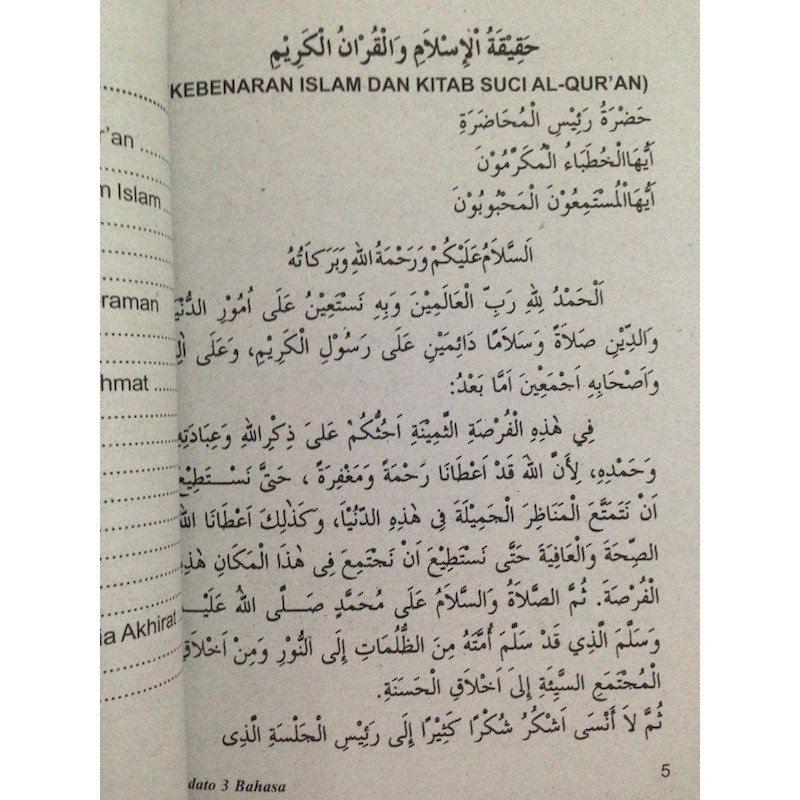 حَقِيْقَةُ الْإِسْلَامِ وَالْقُرْانُ الْكَرِيْمِ
KEBENARAN ISLAM DAN KITAB SUCI AL-QUR'AN)
حَضْرَةُ رَئِيْسِ الْمُحَاضَرَةِ
اَيُّهَاالْخُطَبَاءُ الْمُكَرَّمُوْنَ
اَيُّهَاالْمُسْتَمِعُوْنَ الْمَحْبُوبُوْنَ
اَلسَّلَامُ عَلَيْكُمْ وَرَحْمَةُ اللهِ وَبَرَكَاتُهُ
اَلْحَمْدُ لِلهِ رَبِّ الْعَالَمِيْنَ وَبِهِ نَسْتَعِيْنُ عَلَى اُمُوْرِ الدُّنْيَا
وَالدِّيْنِ صَلَاةً وَسَلَامًا دَائِمَيْنِ عَلَى رَسُوْلِ الْكَرِيْمِ، وَعَلَى الِ
وَاَصْحَابِهِ اَجْمَعِيْنَ اَمَّا بَعْدُ:
فِي هٰذِهِ الْفُرْصَةِ الثَّمِيْنَةِ اَحُثُّكُمْ عَلىَ ذِكْرِاللهِ وَعِبَادَتِهِ
وَحَمْدِهِ، لِأَنَّ اللهَ قَدْ اَعْطَانَا رَحْمَةً وَمَغْفِرَةً ، حَتىَّ نَسْتَطِيْعَ
اَنْ نَتَمَتَّعَ الْمَنَاظِرَ الْجَمِيْلَةَ فِى هٰذِهِ الدُّنْيَا، وَكَذٰلِكَ اَعْطَانَا اللهُ
الصِّحَةَ وَالْعَافِيَةَ حَتَّى نَسْتَطِيْعَ اَنْ نَجْتَمِعَ فِى هٰذَا الْمَكَانِ هٰذِهِ
الْفُرْصَةَ. ثُمَّ الصَّلَاةُ وَالسَّلَامُ عَلَى مُحَمَّدٍ صَلَّى اللهُ عَلَيْهِ
وَسَلَّمَ الَّذِي قَدْ سَلَّمَ أُمَّتَهُ مِنَ الظُّلُمَاتِ إِلَى النُّوْرِ وَمِنْ اَخْلَاقِ
الْمُجْتَمَعِ السَّيِّئَةِ إِلىَ اَخْلَاقِ الْحَسَنَةِ.
ثُمَّ لاَ أَنْسَى اَشْكُرُ شُكْرًا كَثِيْرًا إِلَى رَئِيْسِ الْجَلْسَةِ الَّذِى
5
dato 3 Bahasa
r'an
m Islam
raman
hmat
ia Akhirat